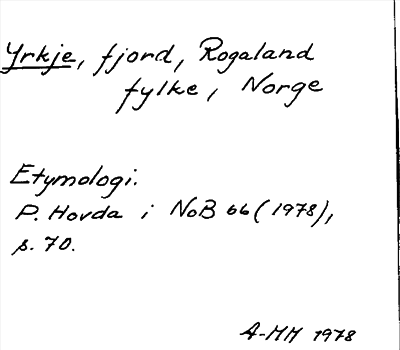 Yrkje, fjord, Rogaland
fylke, Norge
Etymologi.
P. Hovda i NoB 66 (1978),
s. 70.
A-MH 1978